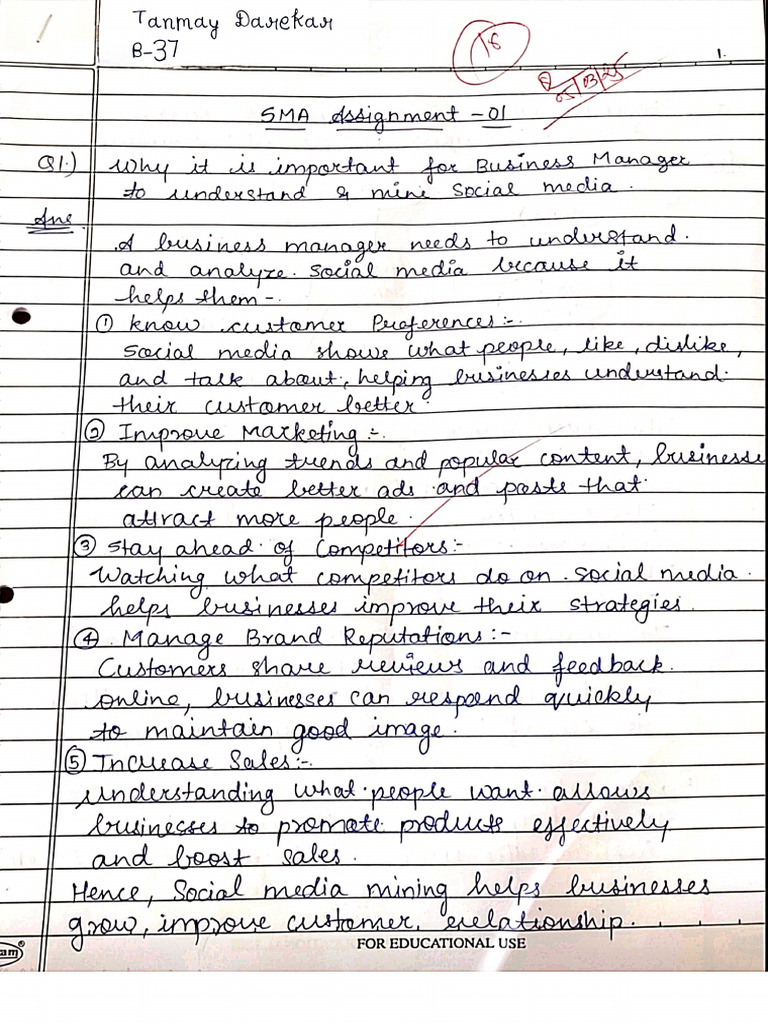 Tanmay Darekar
B-37
18
1.
05/03/25
SMA Assignment - 01
Q1.) Why it is important for Business Manager
to understand & mine social media.
Ans
A business manager needs to understand.
and analyze. social media because it
helps them -.
① know customer Preferences:-.
Social media shows what people, like, dislike,
and talk about, helping businesses understand.
their customer better.
② Improve Marketing :-.
By analyzing trends and popular content, businesse
can create better ads and posts that
attract more people.
③ Stay ahead of Competitors:-
Watching what competitors do on social media.
helps businesses improve their strategies.
④ Manage Brand Reputations:-
Customers share reviews and feedback.
online, businesses can respond quickly
to maintain good image.
⑤ Increase Sales:-.
Understanding what people want allows
businesses to promote products effectively
and boost sales.
Hence, Social media mining helps businesses
grow, improve customer, relationship.
FOR EDUCATIONAL USE